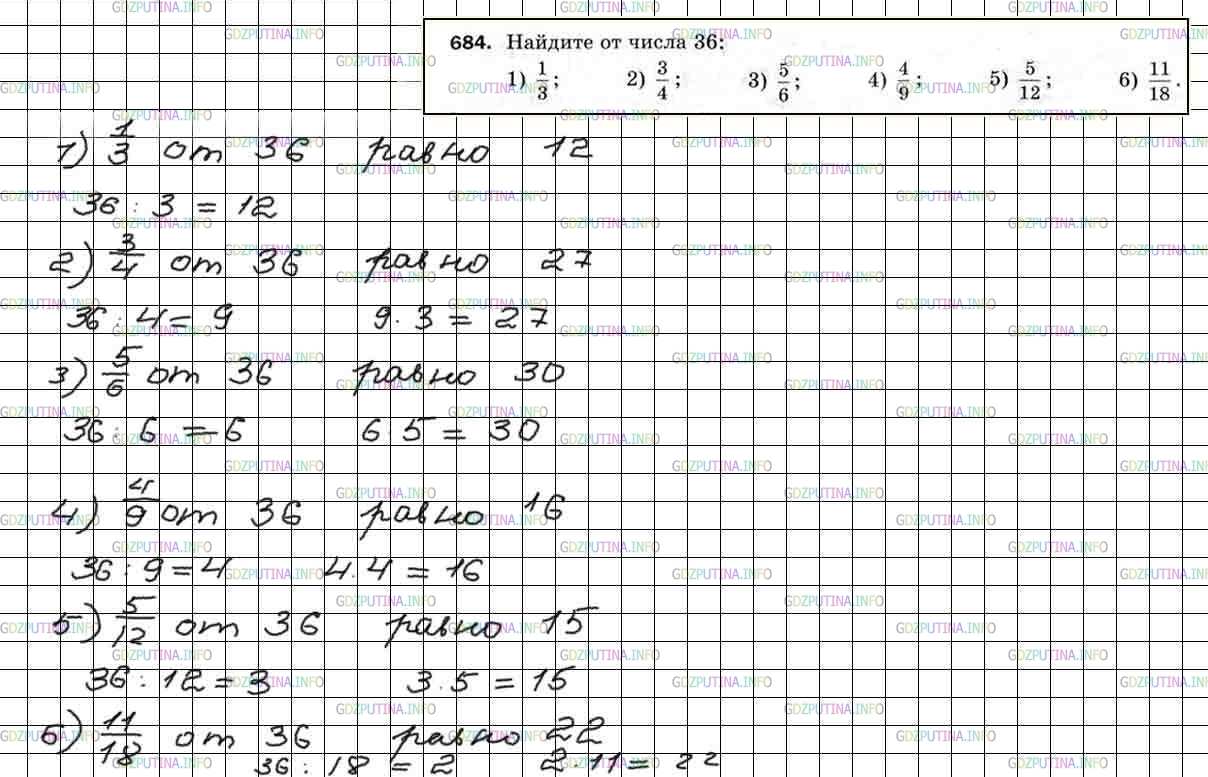 684. Найдите от числа 36:
1) 1/3; 2) 3/4; 3) 5/6; 4) 4/9; 5) 5/12; 6) 11/18.
1) 1/3 от 36 равно 12
36 : 3 = 12
2) 3/4 от 36 равно 27
36 : 4 = 9 9 · 3 = 27
3) 5/6 от 36 равно 30
36 : 6 = 6 6 · 5 = 30
4) 4/9 от 36 равно 16
36 : 9 = 4 4 · 4 = 16
5) 5/12 от 36 равно 15
36 : 12 = 3 3 · 5 = 15
6) 11/18 от 36 равно 22
36 : 18 = 2 2 · 11 = 22
GDZPUTINA.INFO